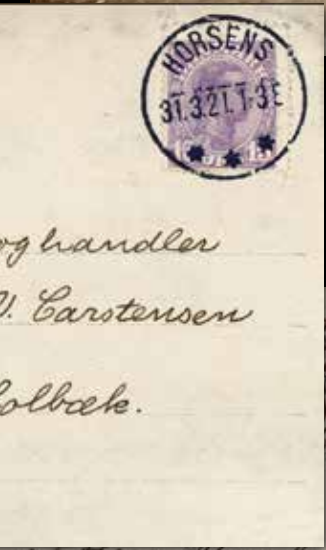 HORSENS
31.3.21. 1-3 E
15 15
oghandler
V. Carstensen
olbæk.